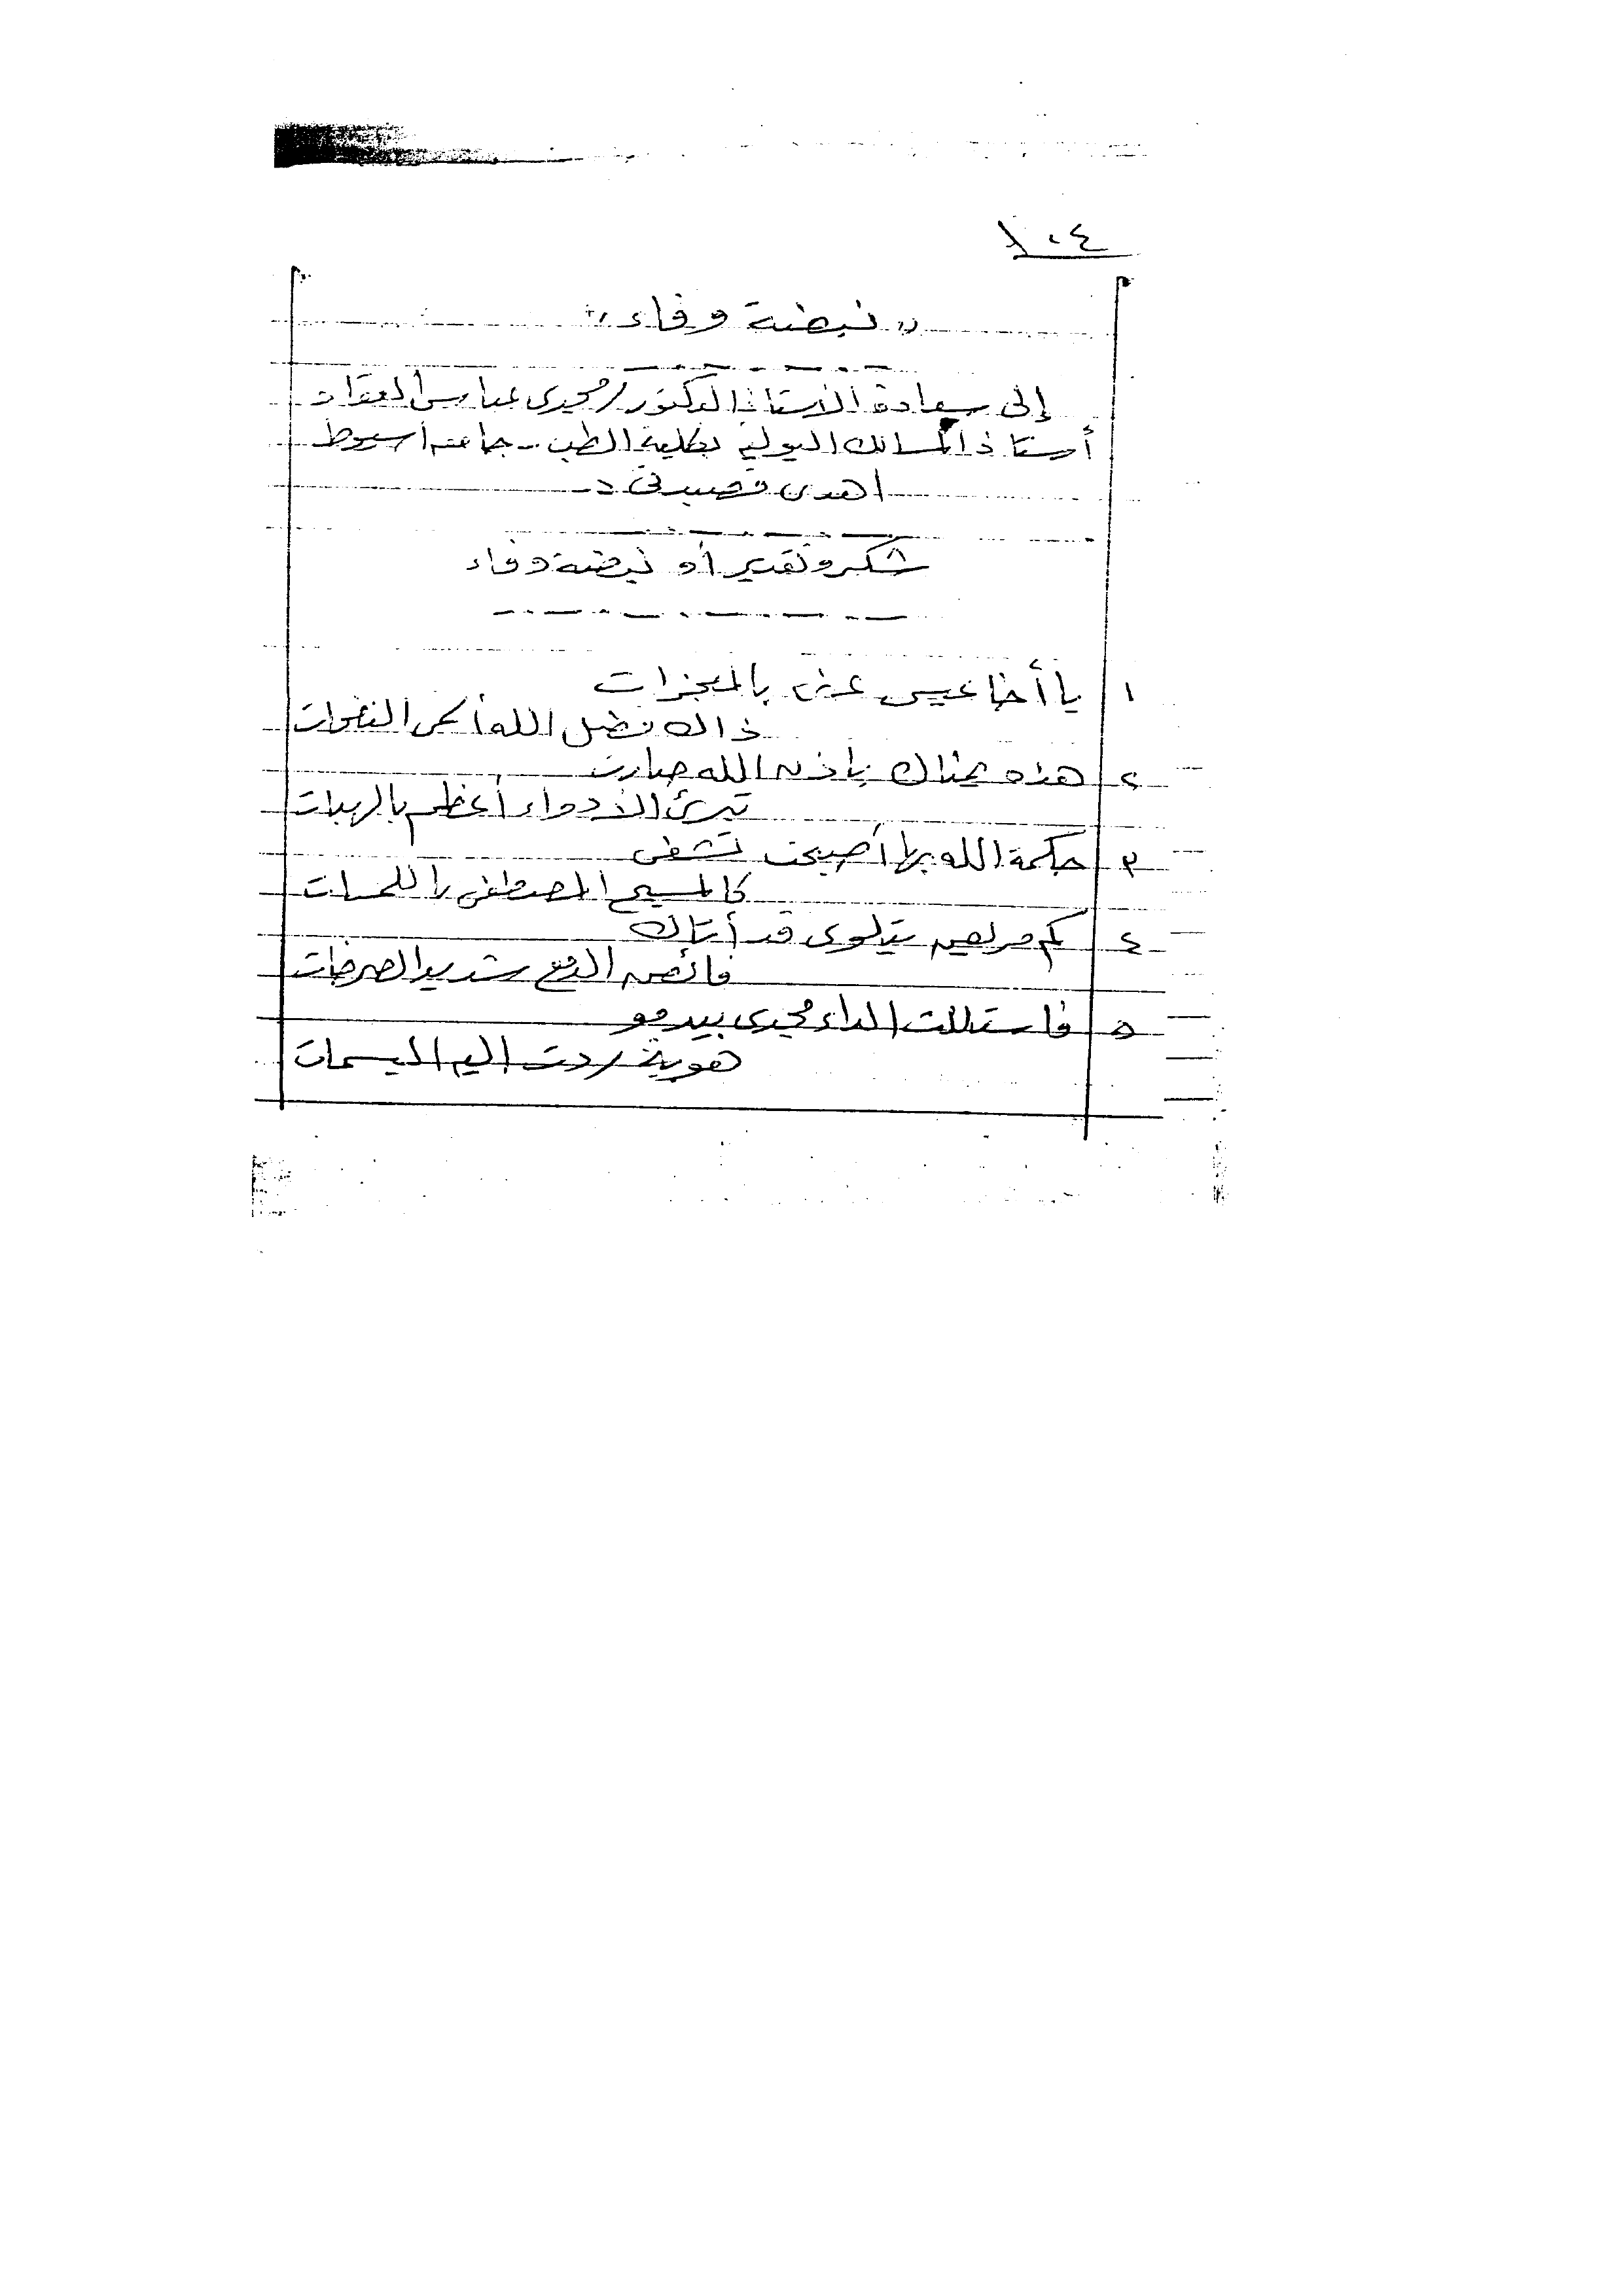 ١٠٤
" نبضة وفاء "
إلى سعادة الأستاذ الدكتور / مجدى عباس العقاد
أستاذ المسالك البولية بكلية الطب - جامعة أسيوط
اهدى قصيدتى :-
شكر وتقدير أو نبضة وفاء
١ يا أخا عيسى بالمعجزات
ذاك فضل الله أسمى
٢ هذه يمناك باذن الله صارت
تبرئ الأدواء أعظم بالهبات
٣ حكمة الله بها أصبحت تشفى
كالمسيح المصطفى باللمسات
٤ كم مريض يتلوى قد أتاك
فائض الدمع شديد الصرخات
٥ فاستللت الداء مجدى بيد
ردت اليه البسمات